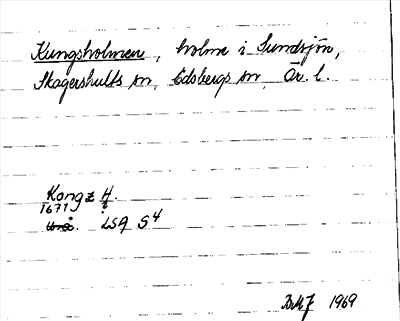 Kungsholmen, holme i Sundsjön,
Skagershults sn, Edsbergs sn, Ör. l.
Kongz H.
1671
LSA S4
1969